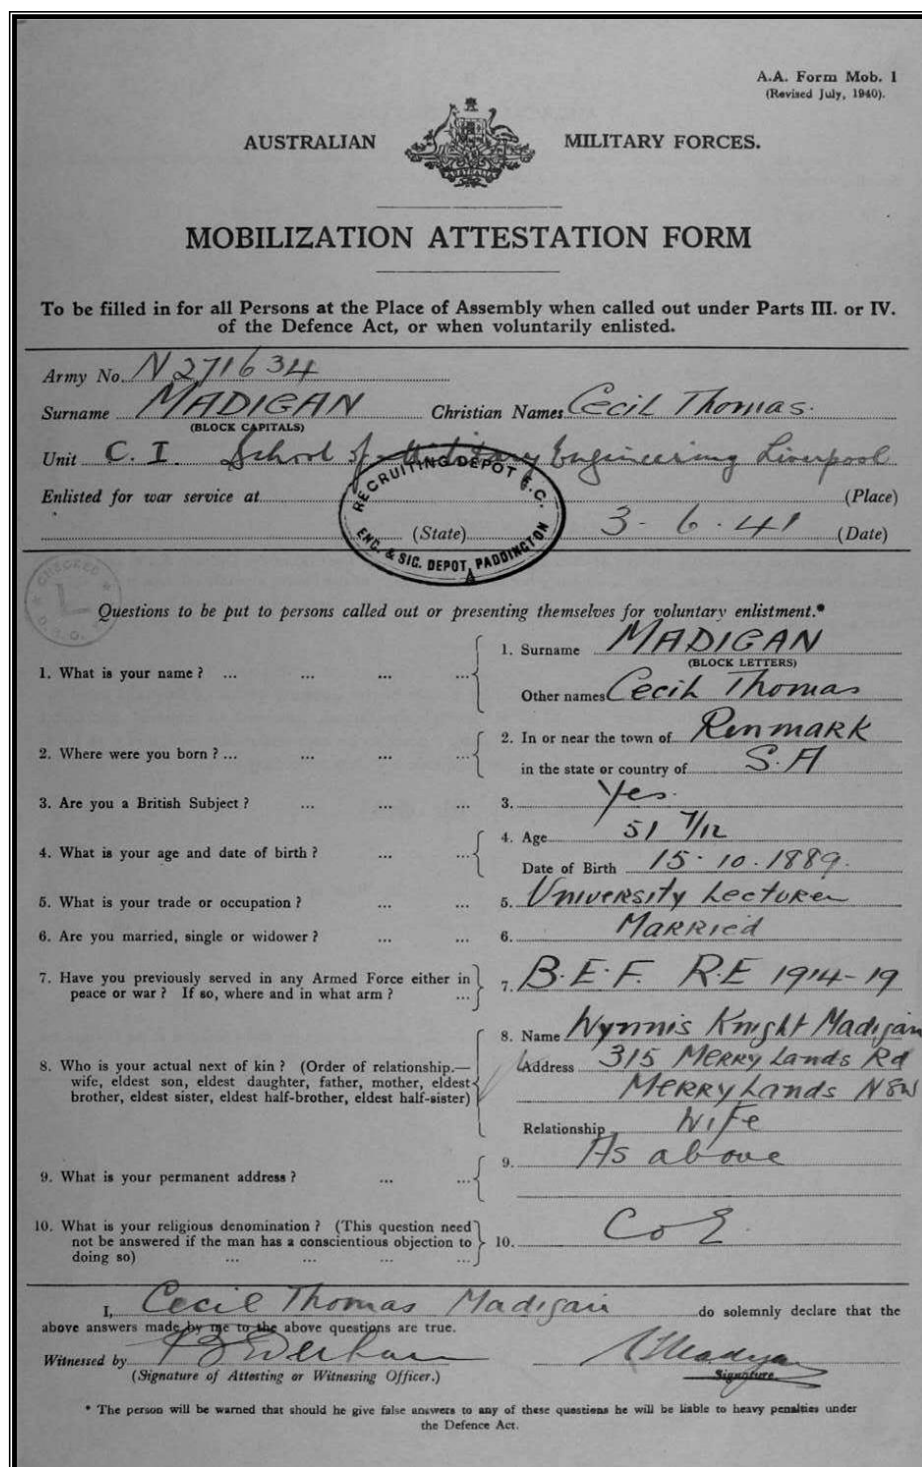 A.A. Form Mob. 1
(Revised July, 1940).
AUSTRALIAN MILITARY FORCES.
AUSTRALIA
MOBILIZATION ATTESTATION FORM
To be filled in for all Persons at the Place of Assembly when called out under Parts III. or IV.
of the Defence Act, or when voluntarily enlisted.
Army No. N271634
Surname MADIGAN Christian Names Cecil Thomas.
(BLOCK CAPITALS)
Unit C. I. School of Military Engineering Liverpool
RECRUITING DEPOT E.C.
Enlisted for war service at (Place)
(State) 3-6-41 (Date)
ENG. & SIG. DEPOT, PADDINGTON
L
Questions to be put to persons called out or presenting themselves for voluntary enlistment.*
1. What is your name ? ... ... ... ... 1. Surname MADIGAN
(BLOCK LETTERS)
Other names Cecil Thomas
2. Where were you born ? ... ... ... ... 2. In or near the town of Renmark
in the state or country of S.A
3. Are you a British Subject ? ... ... ... 3. Yes.
4. What is your age and date of birth ? ... ... 4. Age 51 7/12
Date of Birth 15.10.1889.
5. What is your trade or occupation ? ... ... 5. University Lecturer
6. Are you married, single or widower ? ... ... 6. Married
7. Have you previously served in any Armed Force either in
peace or war ? If so, where and in what arm ? ... 7. B.E.F. R.E 1914-19
8. Who is your actual next of kin ? (Order of relationship.—
wife, eldest son, eldest daughter, father, mother, eldest
brother, eldest sister, eldest half-brother, eldest half-sister)
8. Name Wynnis Knight Madigan
Address 315 Merrylands Rd
Merrylands NSW
Relationship Wife
9. What is your permanent address ? ... ... 9. As above
10. What is your religious denomination ? (This question need
not be answered if the man has a conscientious objection to
doing so) ... ... ... ... 10. C of E.
I, Cecil Thomas Madigan do solemnly declare that the
above answers made by me to the above questions are true.
Witnessed by
(Signature of Attesting or Witnessing Officer.) Signature
* The person will be warned that should he give false answers to any of these questions he will be liable to heavy penalties under
the Defence Act.